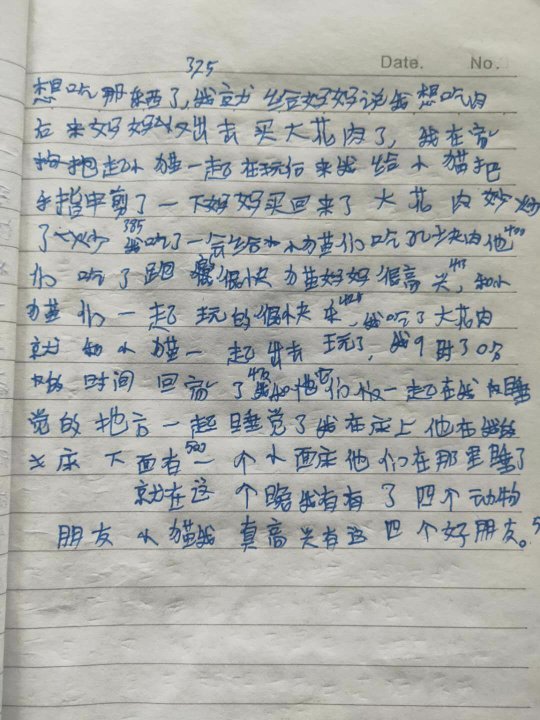 325
Date. No.
想吃那东西了,我就给妈妈说我想吃肉
后来妈妈又出去买大花肉了,我在家
抱起小猫一起在玩后来我给小猫把
手指甲剪了一下妈妈买回来了大花肉炒
了一炒385我吃了一会给小猫们吃几块肉他400
们吃了跑很快猫妈妈很高兴,413和小
猫们一起玩的很快乐,424我吃了大花肉
就和小猫一起出去玩了,我9时
时间回家了我和他们一起在我睡
觉的地方一起睡觉了我在床上他在我的
床下面有500一个小面床他们在那里睡了
就在这个晚我有有了四个动物
朋友小猫我真高兴有这四个好朋友。5